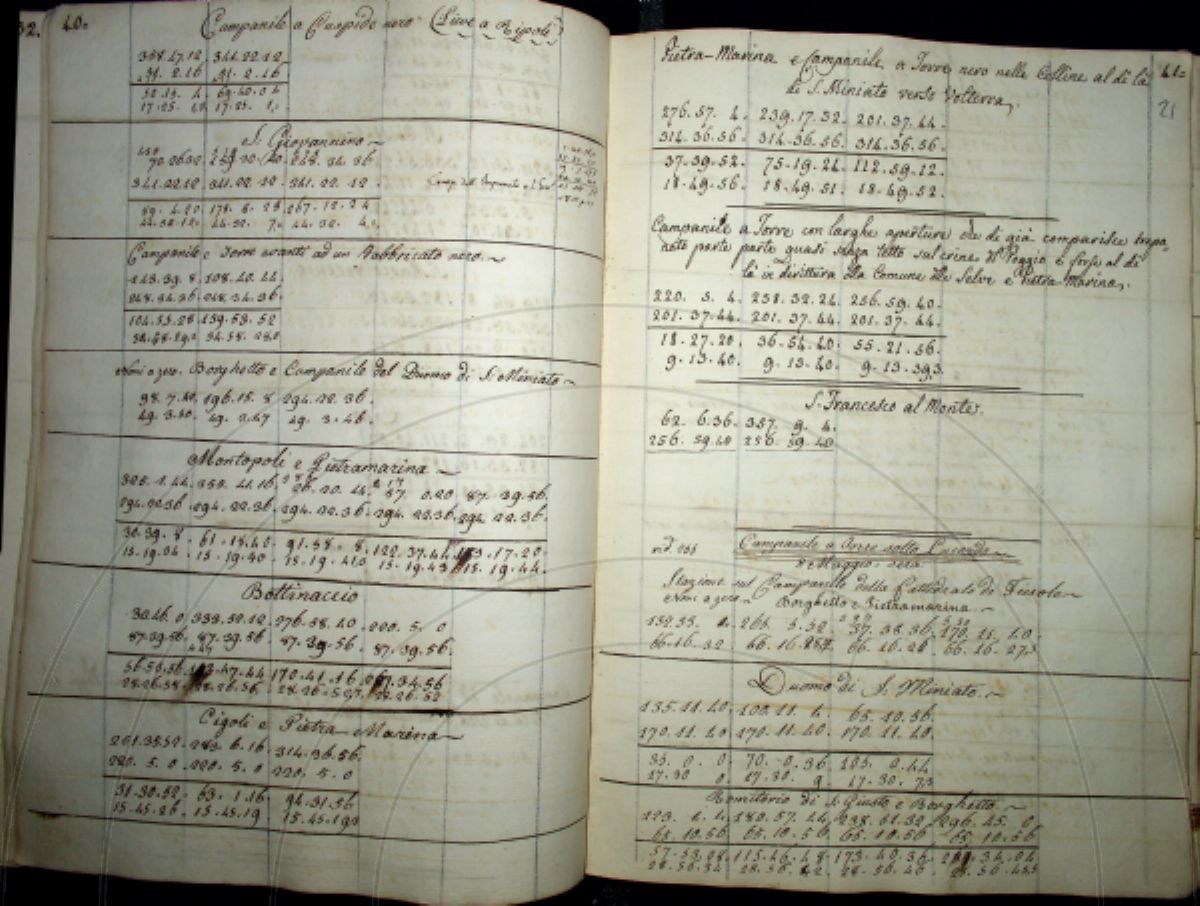 32.
40=
Campanile a Cuspide nero (Lieve a Ripoli)
358.47.12, 341.22.12
52.19. 4. 69.40.04
S. Giovannino
341.22.12. 341.22.12. 341.22.12.
89. 4.20. 178. 8.28. 267.12.24
44.32. 7. 44.32. 4.
Campanile e Torre avanti ad un Fabbricato nero.
143.39.8. 108.40.44.
248.34.36. 248.34.36.
104.53.28 139.53.52
Borghetto e Campanile del Duomo di S. Miniato
98. 7.20. 196.15.8 294.22.36.
49. 3.40. 49. 3.47 49. 3.46.
Montopoli e Pietramarina
325.1.44. 355.41.16. 26.20.44. 57. 0.20 87.39.56.
294.22.36. 294.22.36. 294.22.36. 294.22.36. 294.22.36.
30.39.8. 61.18.40. 91.58.8. 122.37.44. 153.17.20.
15.19.34. 15.19.40. 15.19.41.0 15.19.43 15.19.44.
Bottinaccio
30.46.0 333.52.12. 276.58.40. 220. 5. 0
87.39.56. 87.39.56. 87.39.56. 87.39.56.
56.53.56. 113.47.44 170.41.16. 227.34.56
28.26.58. 28.26.56. 28.26.52,7. 28.26.52
Cigoli e Pietra Marina
251.35.52. 283. 6.16. 314.36.56.
220. 5. 0. 220. 5. 0 220. 5. 0
31.30.52. 63. 1.16. 94.31.56
15.45.26. 15.45.19 15.45.19,3
41=
21
Pietra-Marina e Campanile a Torre nero nelle Colline al di là
di S. Miniato verso Volterra.
276.57. 4. 239.17.32. 201.37.44.
314.36.56. 314.36.56. 314.36.56.
37.39.52. 75.19.24. 112.59.12.
18.49.56. 18.49.51. 18.49.52.
Campanile a Torre con larghe aperture che di già comparisce
parte parte quasi senza tetto sul crine del Poggio e forse al di
là in dirittura alla Comune delle Selve e Pietra-Marina.
220. 5. 4. 238.32.24. 256.59.40.
201.37.44. 201.37.44. 201.37.44.
18.27.20. 36.54.40. 55.21.56.
9.13.40. 9.13.40. 9.13.39,3.
S. Francesco al Monte.
62. 6.36. 357. 9. 4.
256.59.40 256.59.40
Campanile a Torre sotto
8 Maggio sera
Stazione sul Campanile della Cattedrale di Fiesole
Borghetto e Pietramarina
132.33. 4. 265. 5.52. 37.38.36. 170.11.40.
66.16.32 66.16.28 66.16.26. 66.16.27,5
Duomo di S. Miniato
135.11.40, 100.11. 4. 65.10.56.
170.11.40 170.11.40. 170.11.40.
35. 0. 0. 70. 0.36. 105. 0.44
17.30 0 17.30. 9. 17.30. 7,3
Romitorio di S. Giusto e Borghetto
123. 4.4. 180.57.44. 238.51.32. 296.45. 0.
65.10.56 65.10.56 65.10.56 65.10.56
57.53.08. 115.46.48. 173.40.36. 231.34.04
28.56.34 28.56.42. 28.56.46 28.56.45,5